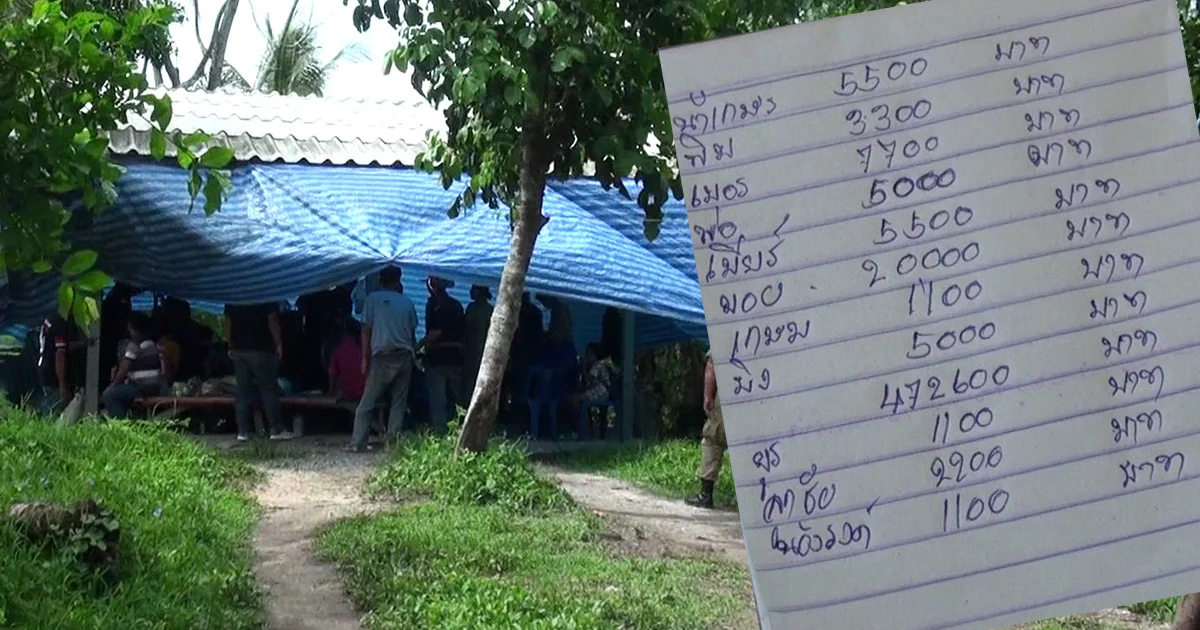 น้าเกษร 5500 บาท
พิม 3300 บาท
เมอร 7700 บาท
พ่อ 5000 บาท
เบียร์ 5500 บาท
บอย 20000 บาท
เกษม 1100 บาท
พิง 5000 บาท
472600 บาท
ยุร 1100 บาท
สาชัย 2200 บาท
1100 บาท